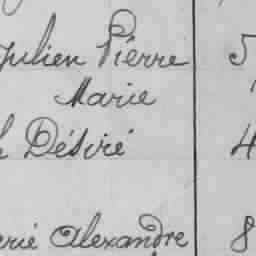 Julien Pierre 5
Marie
Désiré 4
Alexandre 8